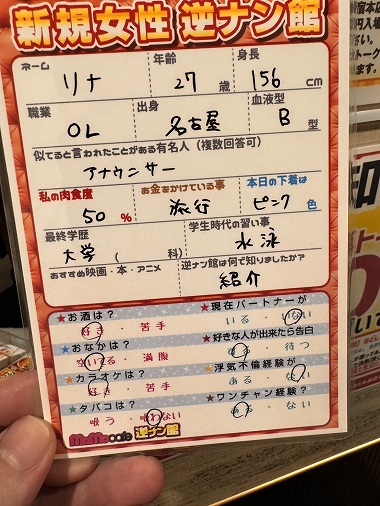 新規女性 逆ナン館
ネーム 年齢 身長
リナ 27歳 156cm
職業 出身 血液型
OL 名古屋 B型
似てると言われたことがある有名人(複数回答可)
アナウンサー
私の肉食度 お金をかけている事 本日の下着は
50% 旅行 ピンク色
最終学歴 学生時代の習い事
大学( 科) 水泳
おすすめ映画・本・アニメ 逆ナン館は何で知りましたか?
紹介
★お酒は? ★現在パートナーが
好き・苦手 いる・いない
★おなかは? ★好きな人が出来たら告白
空いてる・満腹 する・待つ
★カラオケは? ★浮気不倫経験が
好き・苦手 ある・ない
★タバコは? ★ワンチャン経験が
吸う・吸わない ある・ない
MoMo cafe 逆ナン館